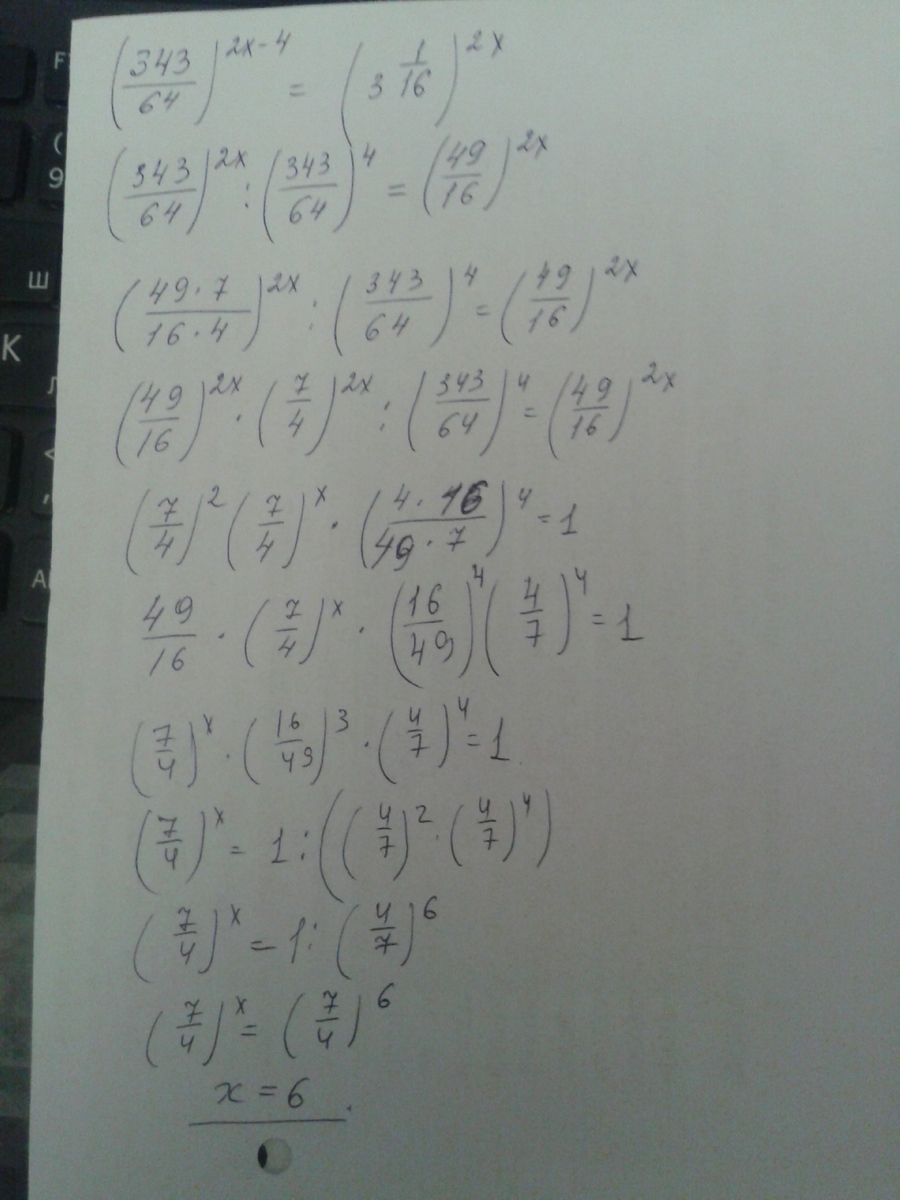 (343/64)^(2x-4) = (3 1/16)^(2x)
(343/64)^(2x) : (343/64)^4 = (49/16)^(2x)
(49·7/16·4)^(2x) : (343/64)^4 = (49/16)^(2x)
(49/16)^(2x) · (7/4)^(2x) : (343/64)^4 = (49/16)^(2x)
(7/4)^2 (7/4)^x · (4·16/49·7)^4 = 1
49/16 · (7/4)^x · (16/49)^4 (4/7)^4 = 1
(7/4)^x · (16/49)^3 · (4/7)^4 = 1
(7/4)^x = 1 : ((4/7)^2 · (4/7)^4)
(7/4)^x = 1 : (4/7)^6
(7/4)^x = (7/4)^6
x = 6.
F
(
9
Ш
K
Л
<
,
A